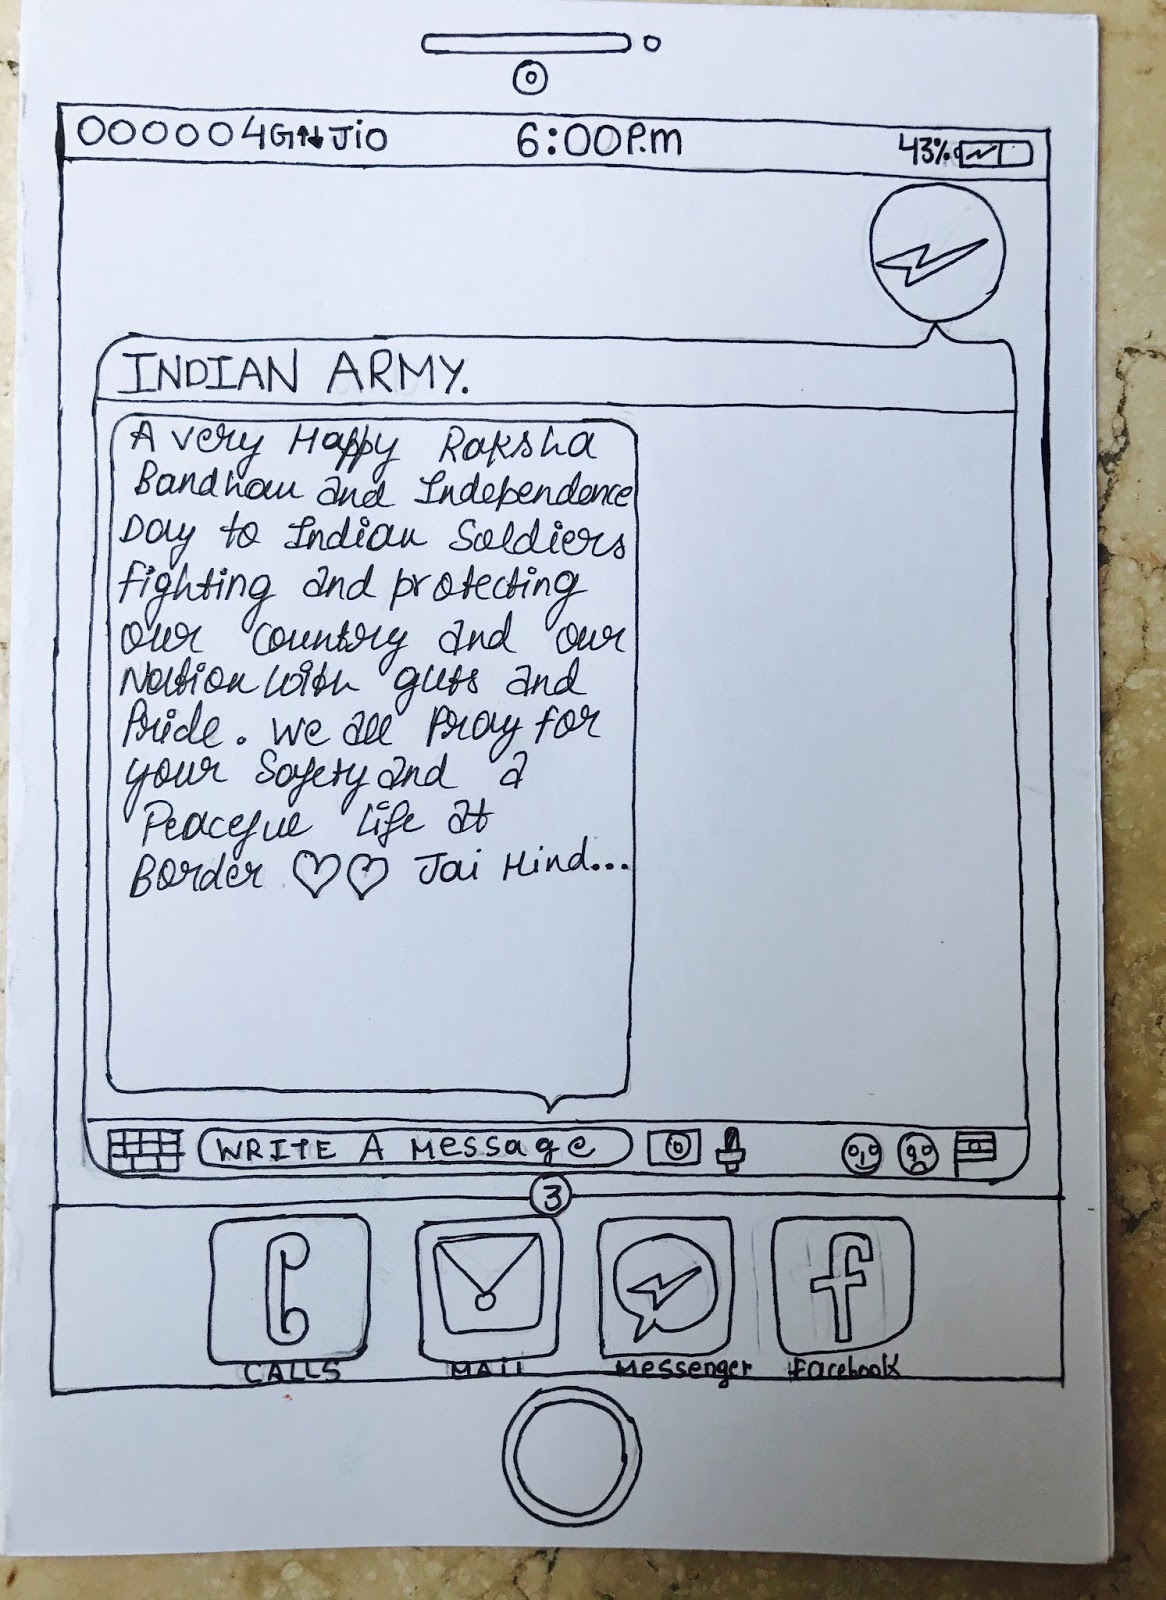 4G Jio 6:00P.m 43%
INDIAN ARMY.
A very Happy Raksha
Bandhan and Independence
Day to Indian Soldiers
fighting and protecting
our country and our
Nation with guts and
Pride. We all Pray for
your Safety and a
Peaceful life at
Border ♡♡ Jai Hind...
WRITE A Message
3
CALLS MAIL Messenger facebook